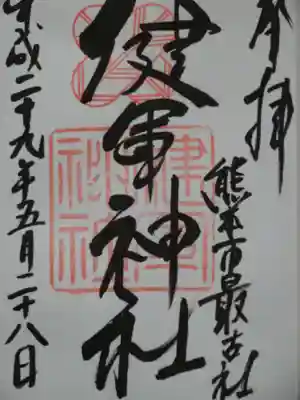 奉拝
熊本市最古社
健軍神社
平成二十九年五月二十八日
健軍神社